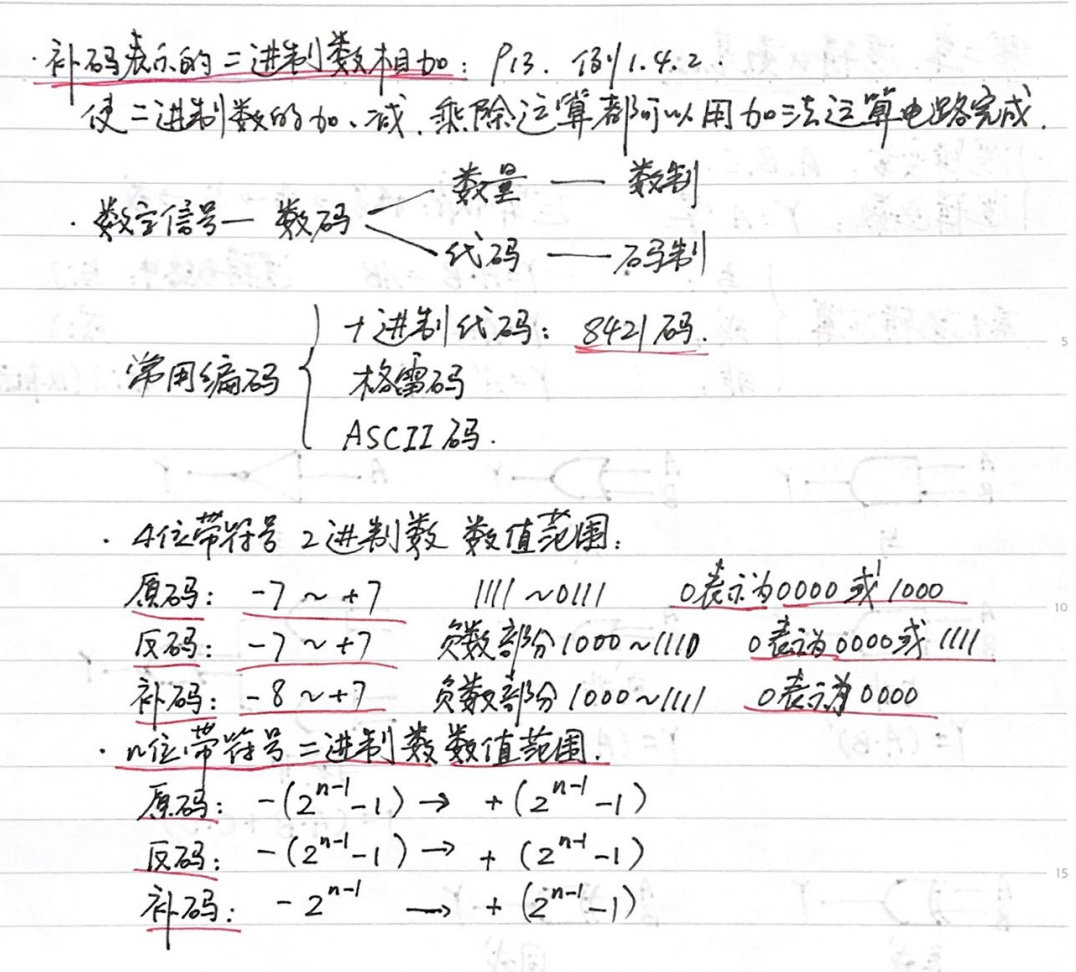 ·补码表示的二进制数相加：P13. 例1.4.2.
使二进制数的加、减、乘除运算都可以用加法运算电路完成.
数量 — 数制
·数字信号—数码
代码 — 码制
十进制代码：8421码.
常用编码
格雷码
ASCII码.
·4位带符号2进制数 数值范围：
原码：-7 ~ +7 1111 ~ 0111 0表示为0000或1000
反码：-7 ~ +7 负数部分1000 ~ 1110 0表示为0000或1111
补码：-8 ~ +7 负数部分1000 ~ 1111 0表示为0000
·n位带符号二进制数数值范围.
原码：-(2^{n-1}-1) → +(2^{n-1}-1)
反码：-(2^{n-1}-1) → +(2^{n-1}-1)
补码：-2^{n-1} → +(2^{n-1}-1)
5
10
15